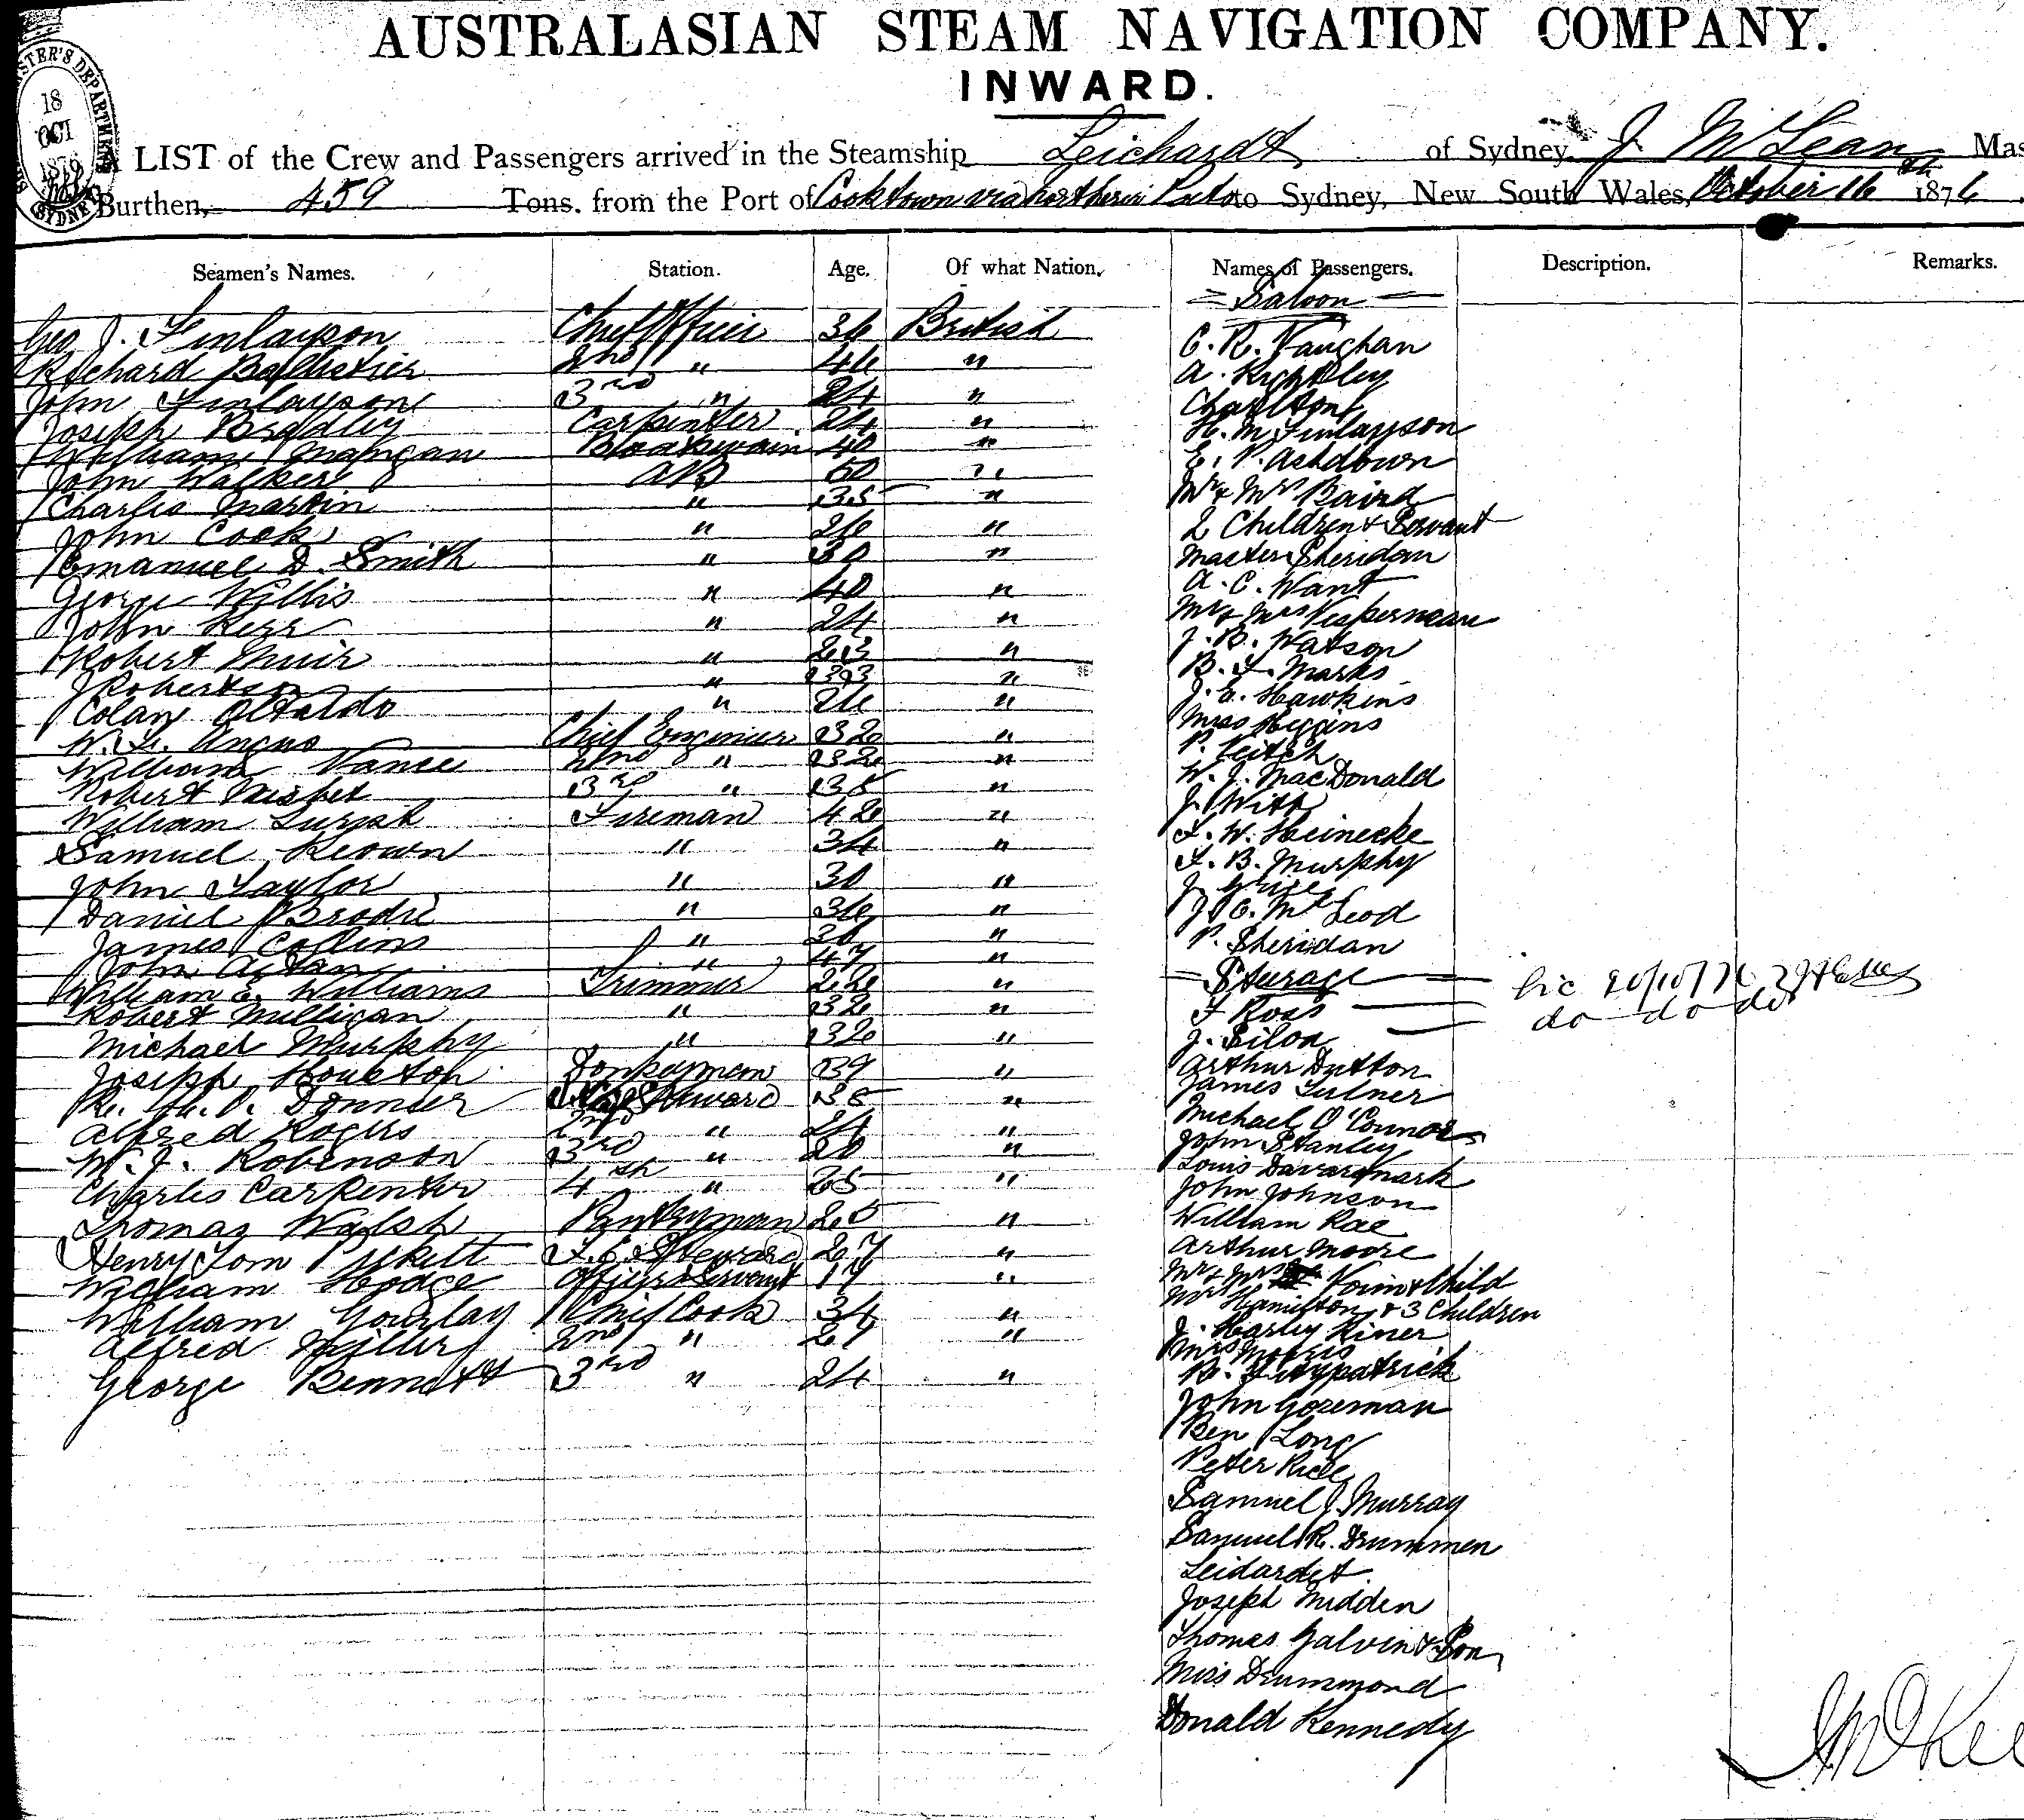 AUSTRALASIAN STEAM NAVIGATION COMPANY.
INWARD.
18
OCT
A LIST of the Crew and Passengers arrived in the Steamship Leichardt of Sydney J McLean Mas
Burthen, 459 Tons. from the Port of Cooktown via northern Ports to Sydney, New South Wales, October 16th 1876
Seamen's Names. Station. Age. Of what Nation. Names of Passengers. Description. Remarks.
Geo J. Finlayson Chief Officer 36 British
Richard Ballistier 2nd " 46 "
John Finlayson 3rd " 24 "
Joseph Bradley Carpenter 24 "
William Mangan Boatswain 40 "
John Walker AB 50 "
Charles Martin " 35 "
John Cook " 26 "
Emanuel D. Smith " 30 "
George Willis " 40 "
John Kerr " 24 "
Robert Muir " 23 "
J Robertson " 33 "
Colan " 26 "
W. Angus Chief Engineer 32 "
William Vance 2nd " 32 "
Robert Nisbet 3rd " 35 "
William Fireman 42 "
Samuel Keown " 34 "
John Taylor " 30 "
Daniel Brodie " 36 "
James Collins " 30 "
John " 47 "
William E. Williams Trimmer 22 "
Robert Milligan " 32 "
Michael Murphy " 32 "
Joseph Houlton Donkeyman 39 "
R. Steward 35 "
Alfred Rogers 2nd " 24 "
W. J. Robinson 3rd " 20 "
Charles Carpenter 4th " 25 "
Thomas Walsh Pantryman 25 "
Henry Tom Pickett F.C. Steward 27 "
William Hodge Officers Servant 17 "
William Gourlay Chief Cook 34 "
Alfred Miller 2nd " 27 "
George Bennett 3rd " 24 "
= Saloon =
C. R. Vaughan
A. Rightley
Charlton
H. M. Finlayson
E. P. Ashdown
Mr & Mrs Baird
2 Children & Servant
Master Sheridan
A. C. Want
Mr & Mrs Vesperneau
J. B. Watson
B. F. Marks
J. E. Hawkins
Miss Higgins
P. Leitch
W. J. MacDonald
J. Witt
F. W. Heinecke
F. B. Murphy
J. Grice
J C. McLeod
P. Sheridan
= Steerage =
F Ross
J. Silva
Arthur Dutton
James Fulner
Michael O'Connor
John Stanley
Louis
John Johnson
William Rae
Arthur Moore
Mr & Mrs & Child
Mrs Hamilton & 3 Children
J. Harley Riner
Mrs Morris
B. Fitzpatrick
John Goreman
Ben Long
Peter Rice
Samuel J. Murray
Samuel R. Drummen
Leidardet
Joseph Midden
Thomas Galvin & Son
Miss Drummond
Donald Kennedy
do do do